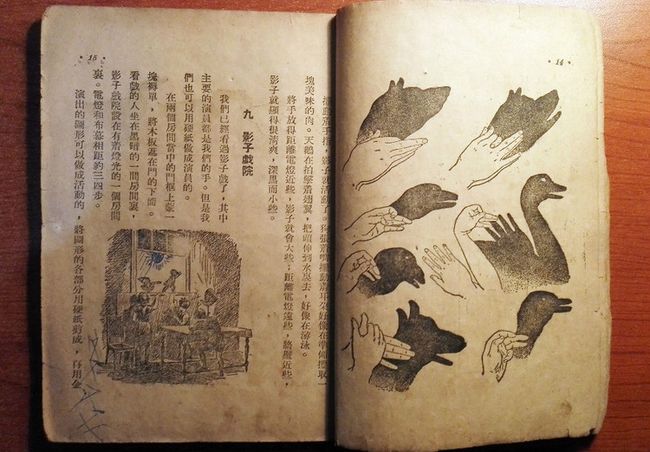 ·14·
·15·
手指,影子就活動了。狗張着嘴擺動着耳朵好像在準備攫取一
塊美味的肉。天鵝在拍擊着翅翼,把頭伸到水裏去,好像在游泳。
將手放得距離電燈近些,影子就會大些;距離電燈遠些,牆壁近些,
影子就顯得很清爽,深黑而小些。
九 影子戲院
我們已經看過影子戲了,其中
主要的演員都是我們的手。但是我
們也可以用硬紙做成演員的。
在兩個房間當中的門框上蒙一
塊褥單,將木板遮在門的下面。
看戲的人坐在黑暗的一間房間裏,
影子戲院設在有着燈光的一個房間
裏。電燈和布幕相距約三四步。
演出的圖形可以做成活動的,將圖形的各部分用硬紙剪成,再用金